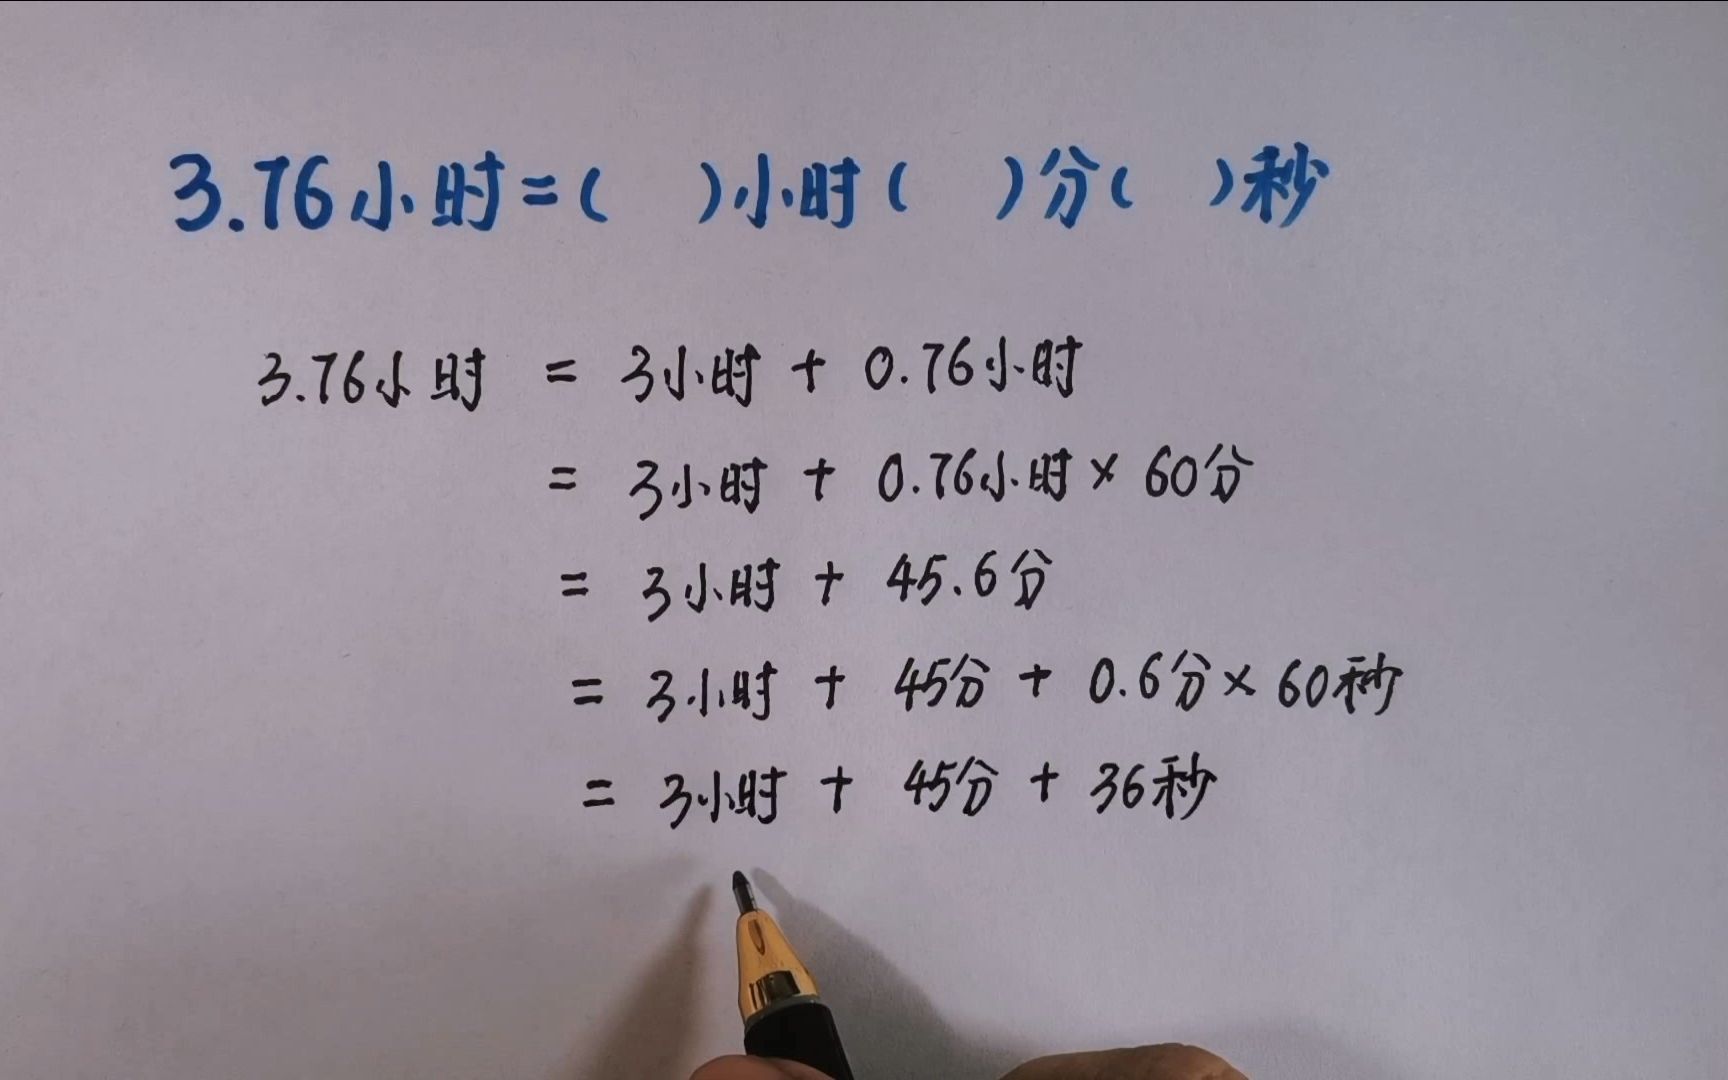 3.76小时=( )小时( )分( )秒
3.76小时 = 3小时 + 0.76小时
= 3小时 + 0.76小时 × 60分
= 3小时 + 45.6分
= 3小时 + 45分 + 0.6分 × 60秒
= 3小时 + 45分 + 36秒